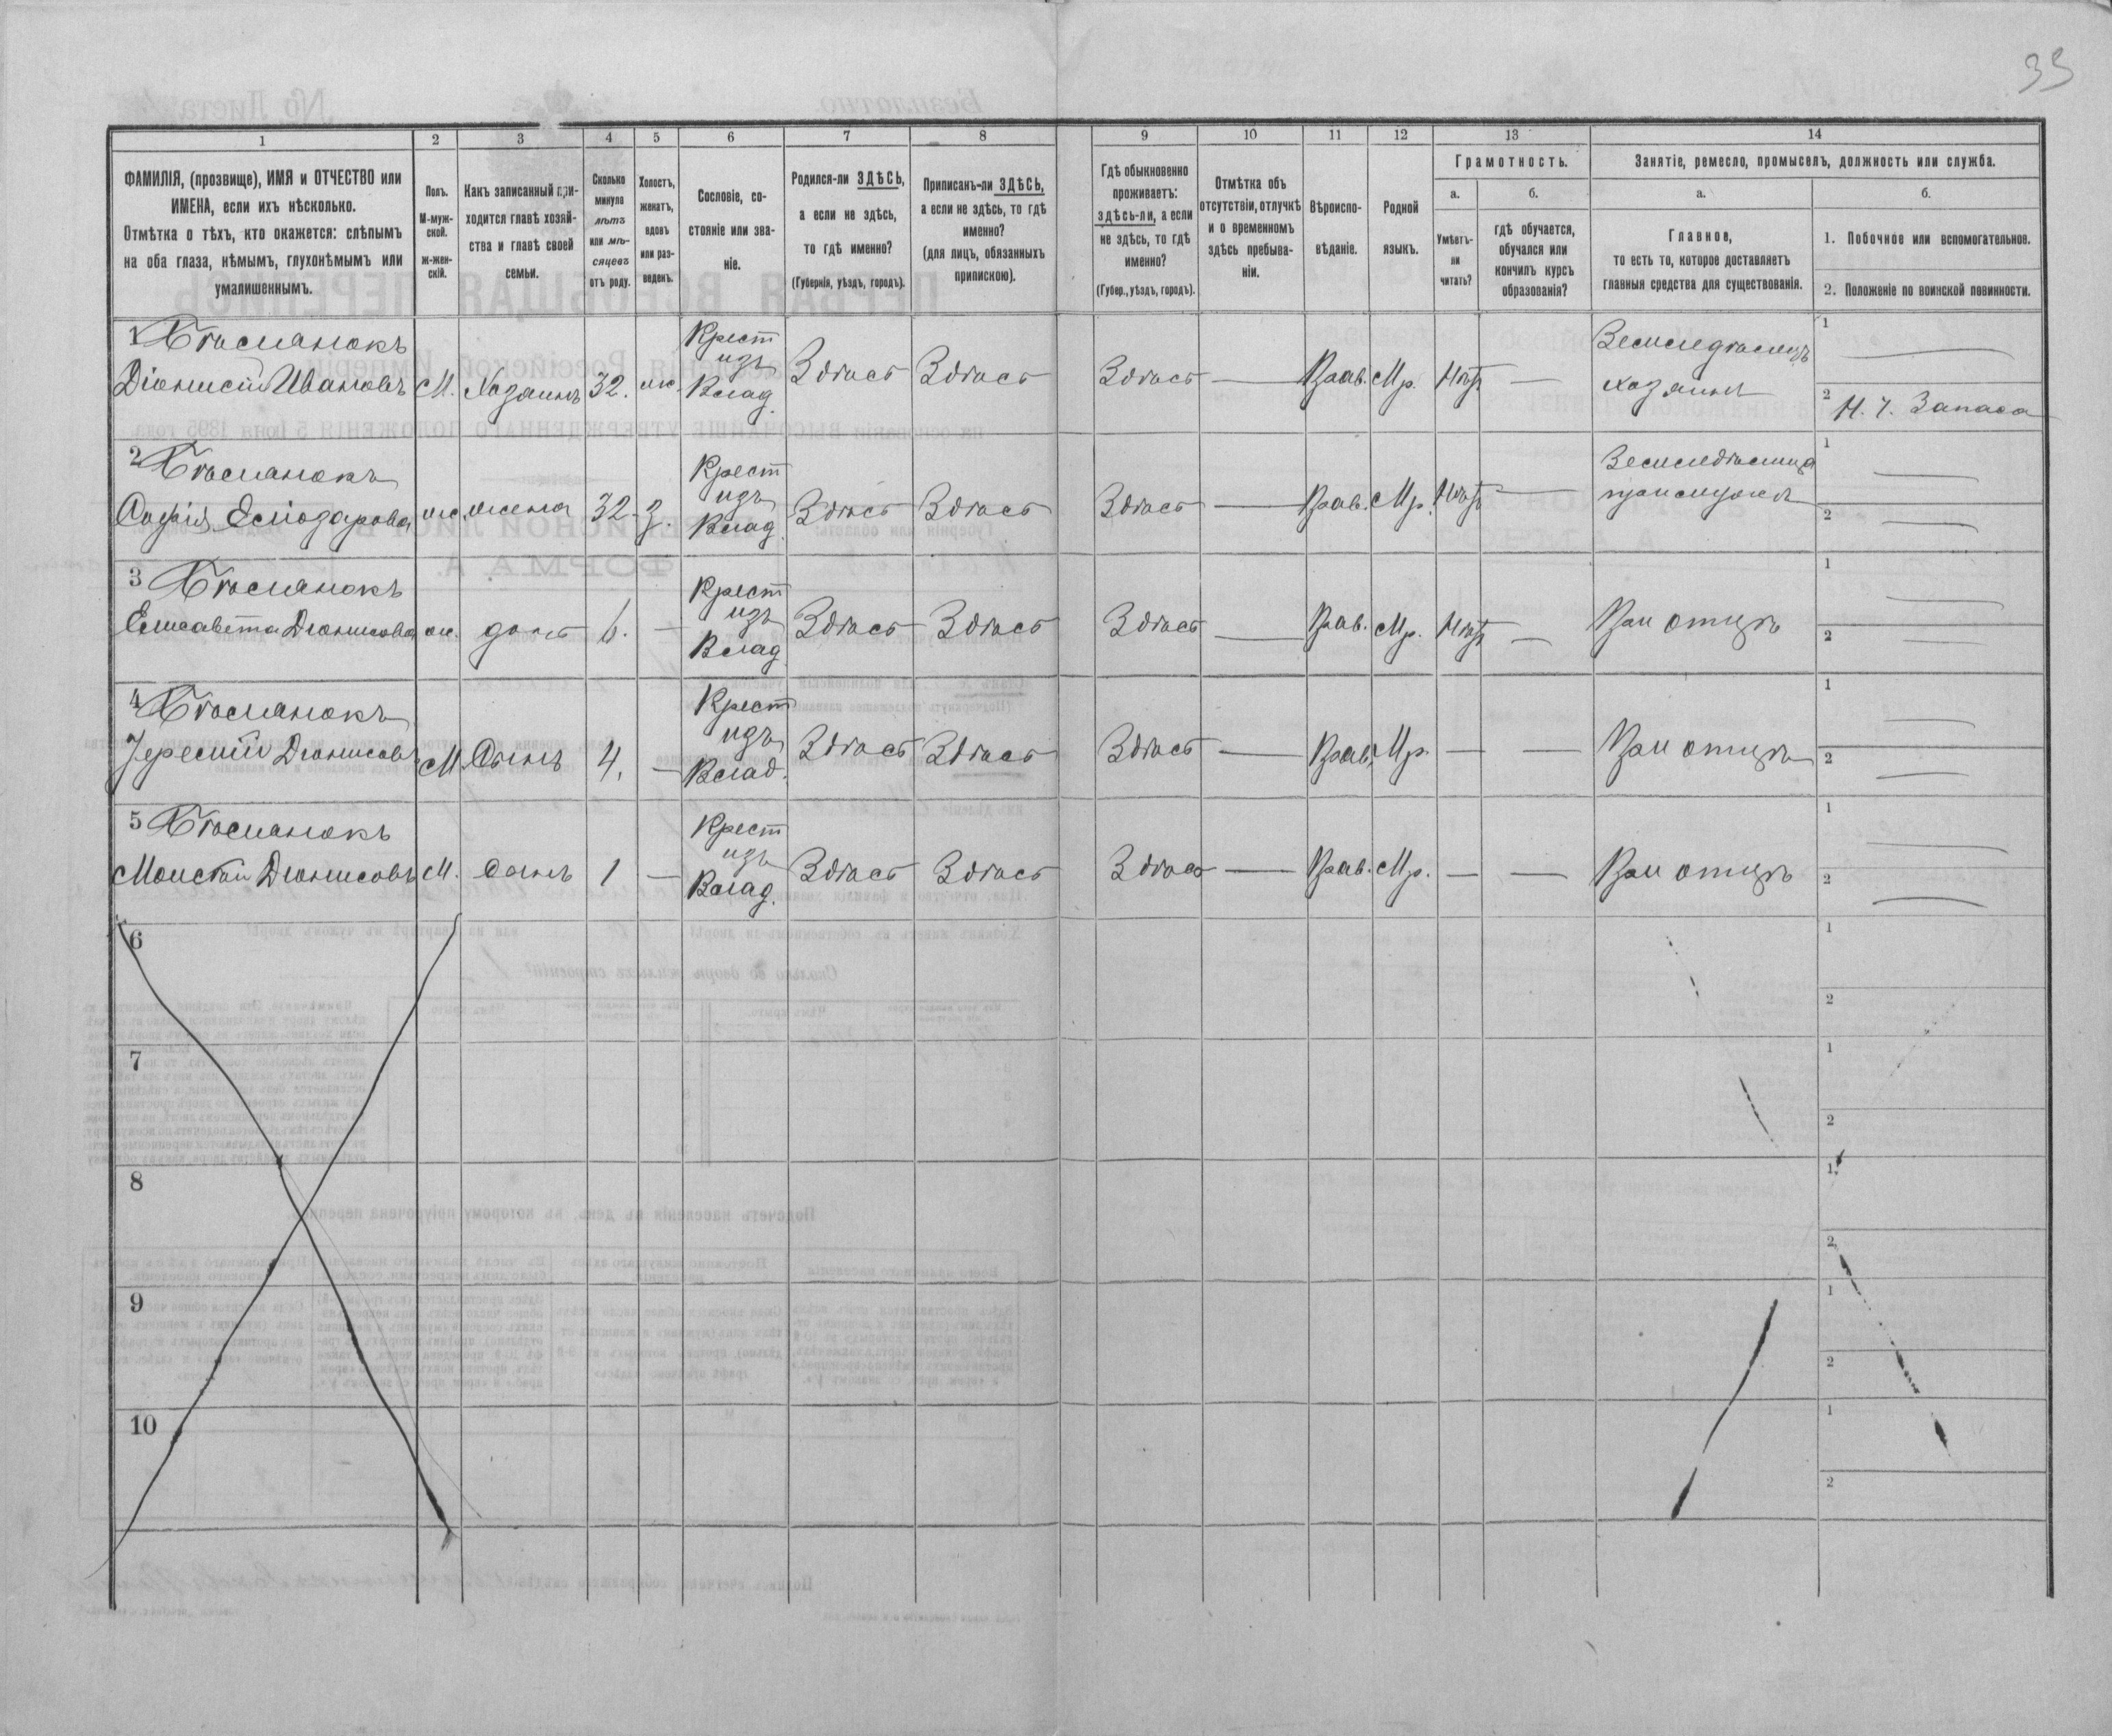 33
1 2 3 4 5 6 7 8 9 10 11 12 13 14
ФАМИЛІЯ, (прозвище), ИМЯ и ОТЧЕСТВО или
ИМЕНА, если ихъ нѣсколько.
Отмѣтка о тѣхъ, кто окажется: слѣпымъ
на оба глаза, нѣмымъ, глухонѣмымъ или
умалишеннымъ.
Полъ.
М-муж-
ской.
ж-жен-
скій.
Какъ записанный при-
ходится главѣ хозяй-
ства и главѣ своей
семьи.
Сколько
минуло
лѣтъ
или мѣ-
сяцевъ
отъ роду.
Холостъ,
женатъ,
вдовъ
или раз-
веденъ.
Сословіе, со-
стояніе или зва-
ніе.
Родился-ли ЗДѢСЬ,
а если не здѣсь,
то гдѣ именно?
(Губернія, уѣздъ, городъ).
Приписанъ-ли ЗДѢСЬ,
а если не здѣсь, то гдѣ
именно?
(для лицъ, обязанныхъ
припискою).
Гдѣ обыкновенно
проживаетъ:
здѣсь-ли, а если
не здѣсь, то гдѣ
именно?
(Губер., уѣздъ, городъ).
Отмѣтка объ
отсутствіи, отлучкѣ
и о временномъ
здѣсь пребыва-
ніи.
Вѣроиспо-
вѣданіе.
Родной
языкъ.
Грамотность.
а.
Умѣетъ-
ли
читать?
б.
гдѣ обучается,
обучался или
кончилъ курсъ
образованія?
Занятіе, ремесло, промыселъ, должность или служба.
а.
Главное,
то есть то, которое доставляетъ
главныя средства для существованія.
б.
1. Побочное или вспомогательное.
2. Положеніе по воинской повинности.
1
Діонисій Ивановъ М. Хозяинъ 32. ж.
Крест
изъ
Влад.
Здѣсь Здѣсь Здѣсь — Прав. Мр. Нѣтъ —
Земледѣлецъ
хозяинъ
1 —
2 Н. Ч. Запаса
2
Софія ж. жена 32. з.
Крест
изъ
Влад.
Здѣсь Здѣсь Здѣсь — Прав. Мр. Нѣтъ —
Земледѣлица
при мужѣ
1 —
2 —
3
Елисавета Діонисова ж. дочь 6. —
Крест
изъ
Влад.
Здѣсь Здѣсь Здѣсь — Прав. Мр. Нѣтъ —
При отцѣ
1 —
2 —
4
Іеремій Діонисовъ М. Сынъ 4. —
Крест
изъ
Влад.
Здѣсь Здѣсь Здѣсь — Прав. Мр. — —
При отцѣ
1 —
2 —
5
Моисей Діонисовъ М. Сынъ 1 —
Крест
изъ
Влад.
Здѣсь Здѣсь Здѣсь — Прав. Мр. — —
При отцѣ
1 —
2 —
6
1
2
7
1
2
8
1
2
9
1
2
10
1
2